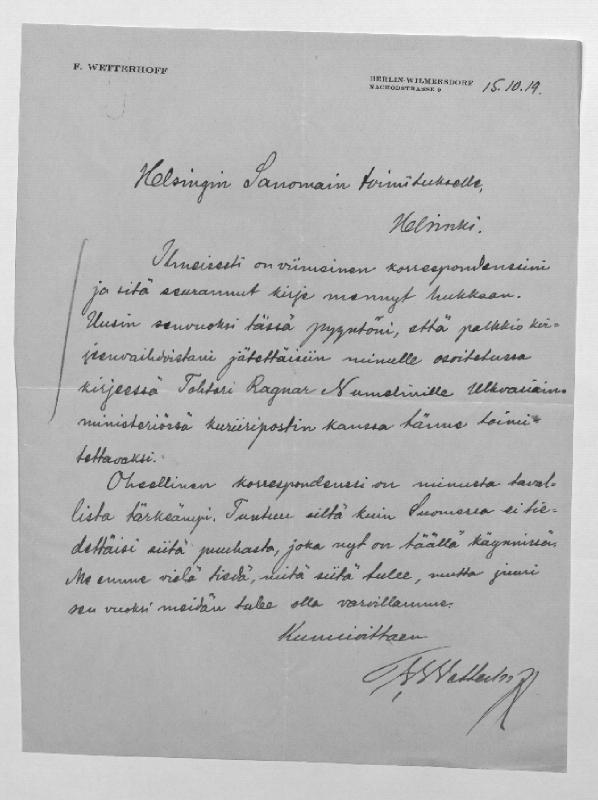 F. WETTERHOFF
BERLIN-WILMERSDORF
NACHODSTRASSE 9
15.10.19.
Helsingin Sanomain toimitukselle,
Helsinki.
Ilmeisesti on viimeinen korrespondenssini
ja sitä seurannut kirje mennyt hukkaan.
Uusin senvuoksi tässä pyyntöni, että palkkio kir-
jeenvaihdostani jätettäisiin minulle osoitetussa
kirjeessä Tohtori Ragnar Numelinille Ulkoasiain-
ministeriössä kuriiripostin kanssa tänne toimi-
tettavaksi.
Oheellinen korrespondenssi on minusta taval-
lista tärkeämpi. Tuntuu siltä kuin Suomessa ei tie-
dettäisi siitä puuhasta, joka nyt on täällä käynnissä.
Me emme vielä tiedä, mitä siitä tulee, mutta juuri
sen vuoksi meidän tulee olla varuillamme.
Kunnioittaen
F Wetterhoff